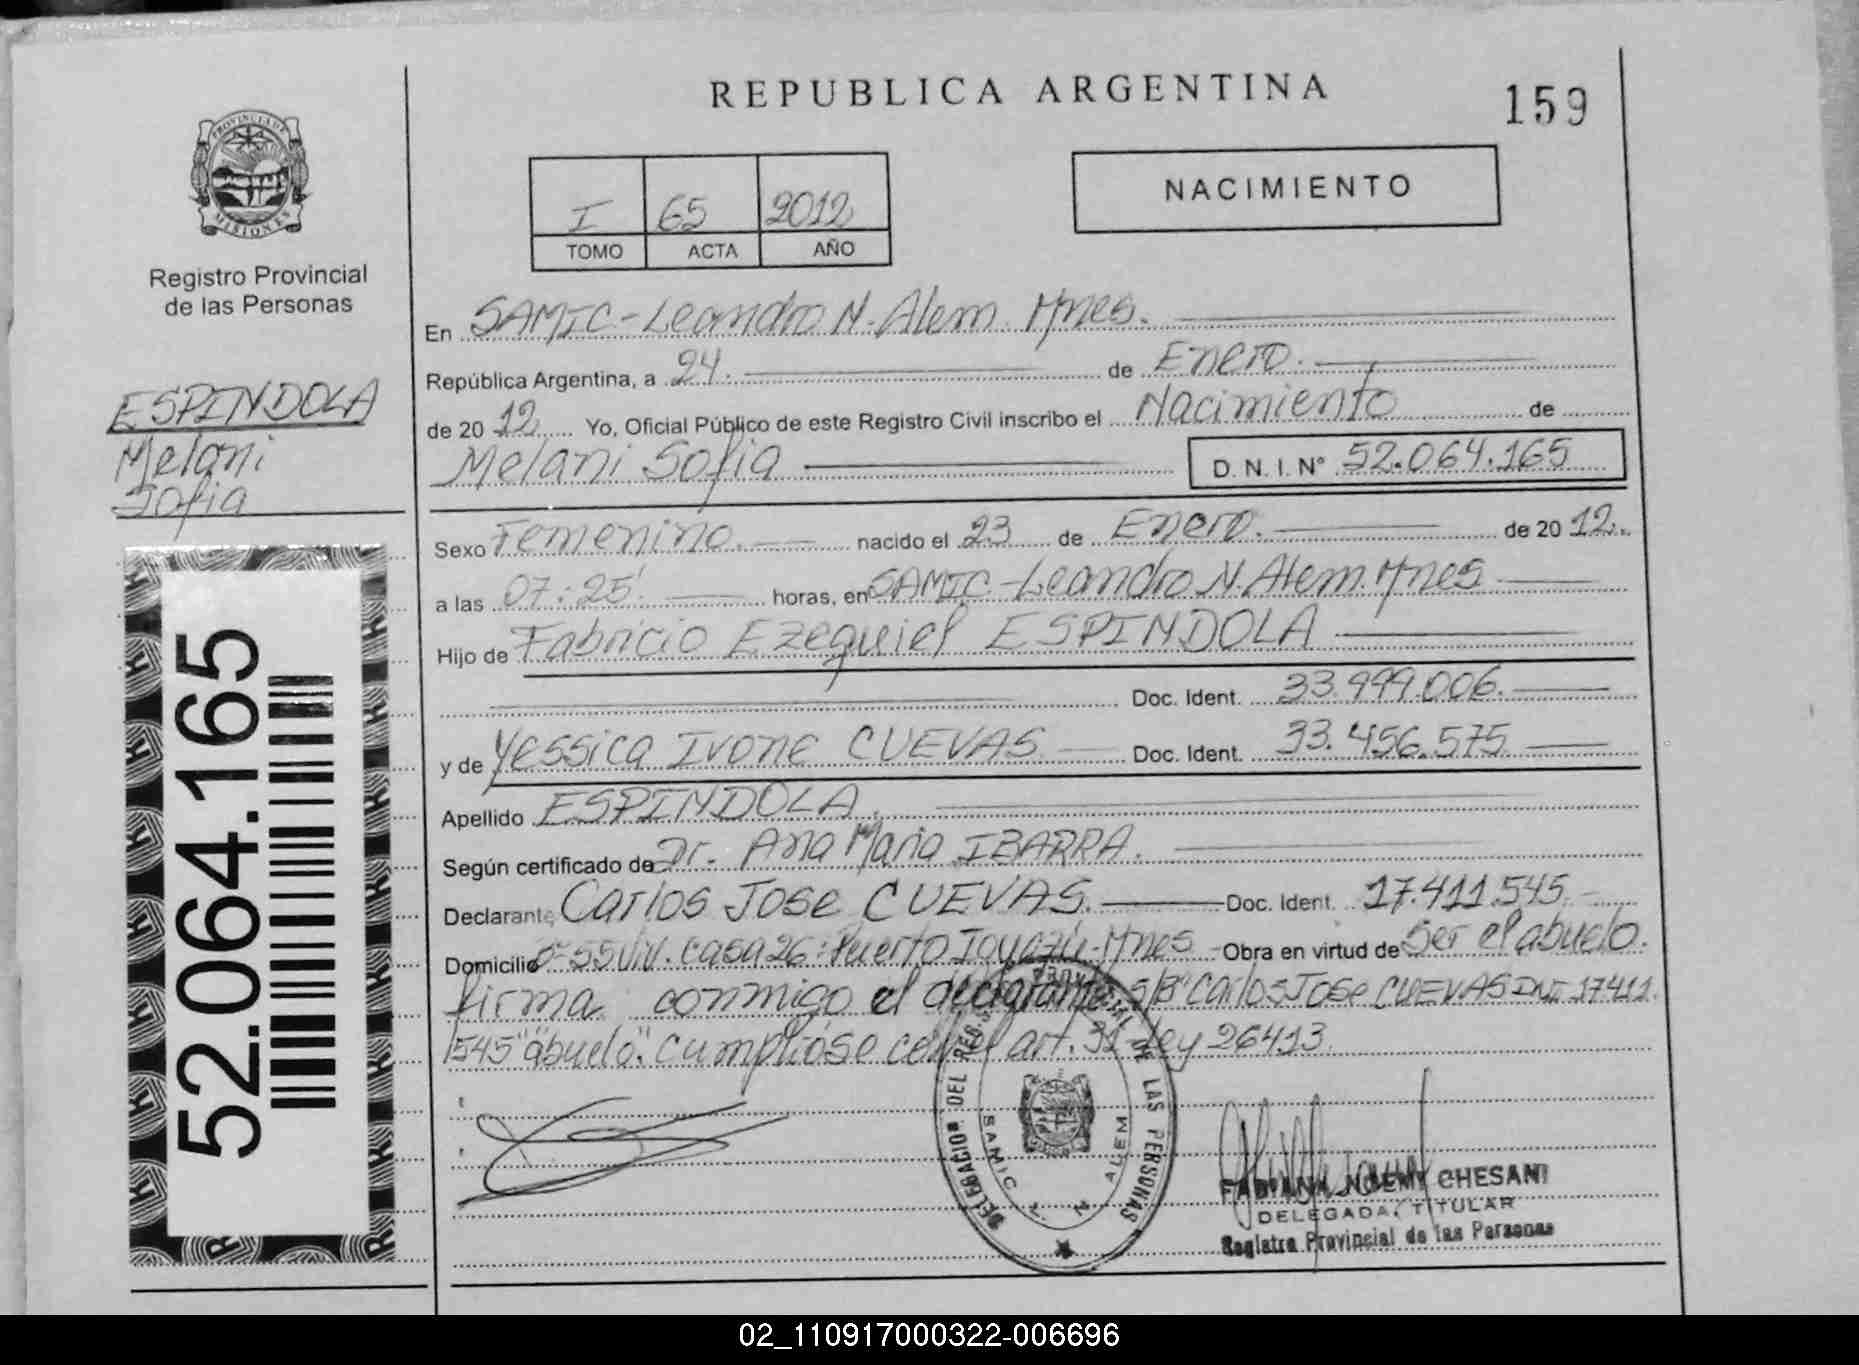 REPUBLICA ARGENTINA
159
PROVINCIA DE
MISIONES
Registro Provincial
de las Personas
I 65 2012
TOMO ACTA AÑO
NACIMIENTO
ESPINDOLA
Melani
Sofia
52.064.165
En SAMIC-Leandro N. Alem. Mnes.
República Argentina, a 24. de Enero.
de 20 12 Yo, Oficial Público de este Registro Civil inscribo el Nacimiento de
Melani Sofia D. N. I. N° 52.064.165
Sexo Femenino. nacido el 23 de Enero. de 20 12.
a las 07:25' horas, en SAMIC-Leandro N. Alem. Mnes
Hijo de Fabricio Ezequiel ESPINDOLA
Doc. Ident. 33.999.006.
y de Yessica Ivone CUEVAS Doc. Ident. 33.456.575
Apellido ESPINDOLA.
Según certificado de Dr. Ana Maria IBARRA.
Declarante Carlos Jose CUEVAS. Doc. Ident. 17.411.545
Domicilio 55 Viv. casa 26. Puerto Iguazú-Mnes Obra en virtud de Ser el abuelo.
firma conmigo el declarante s/Bº Carlos Jose CUEVAS DNI 17411
545 "abuelo". Cumplióse con el art. 31 Ley 26413.
DELEGACION DEL REG. PROVINCIAL DE LAS PERSONAS
SAMIC L. N. ALEM
FABIANA NOEMI CHESANI
DELEGADA TITULAR
Registro Provincial de las Personas
02_110917000322-006696